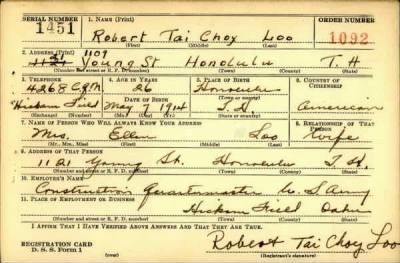 SERIAL NUMBER 1. NAME (Print) ORDER NUMBER
1451 Robert Tai Choy Loo 1092
(First) (Middle) (Last)
2. ADDRESS (Print) 1109
Young St Honolulu T. H
(Number and street or R. F. D. number) (Town) (County) (State)
3. TELEPHONE 4. AGE IN YEARS 5. PLACE OF BIRTH 6. COUNTRY OF CITIZENSHIP
4268 26 Honolulu
(Town or county)
Hickam Field DATE OF BIRTH May 7 1914 T. H. American
(Exchange) (Number) (Mo.) (Day) (Yr.) (State or country)
7. NAME OF PERSON WHO WILL ALWAYS KNOW YOUR ADDRESS 8. RELATIONSHIP OF THAT PERSON
Mrs. Ellen Loo Wife
(Mr., Mrs., Miss) (First) (Middle) (Last)
9. ADDRESS OF THAT PERSON
1121 Young St. Honolulu T. H.
(Number and street or R. F. D. number) (Town) (County) (State)
10. EMPLOYER'S NAME
Construction Quartermaster U. S Army
11. PLACE OF EMPLOYMENT OR BUSINESS
Hickam Field Oahu
(Number and street or R. F. D. number) (Town) (County) (State)
I AFFIRM THAT I HAVE VERIFIED ABOVE ANSWERS AND THAT THEY ARE TRUE.
REGISTRATION CARD Robert Tai Choy Loo
D. S. S. Form 1 (over) (Registrant's signature)